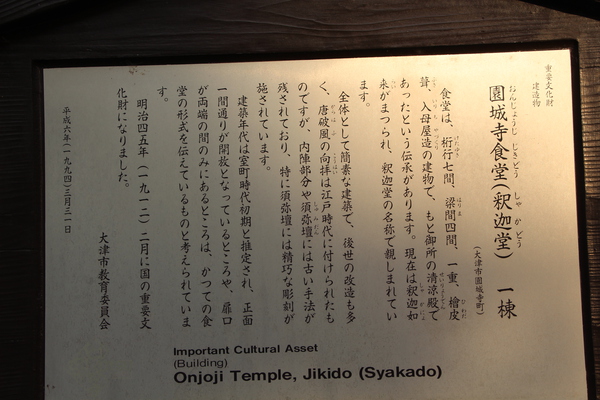 重要文化財
建造物
園城寺食堂(釈迦堂) 一棟
おんじょうじ じきどう しゃ か どう
(大津市園城寺町)
食堂は、桁行七間、梁間四間、一重、檜皮
葺、入母屋造の建物で、もと御所の清涼殿で
あったという伝承があります。現在は釈迦如
来がまつられ、釈迦堂の名称で親しまれてい
ます。
全体として簡素な建築で、後世の改造も多
く、唐破風の向拝は江戸時代に付けられたも
のですが、内陣部分や須弥壇には古い手法が
残されており、特に須弥壇には精巧な彫刻が
施されています。
建築年代は室町時代初期と推定され、正面
一間通りが開放となっているところや、扉口
が両端の間のみにあるところは、かつての食
堂の形式を伝えているものと考えられていま
す。
明治四五年(一九一二)二月に国の重要文
化財になりました。
大津市教育委員会
平成六年(一九九四)三月三一日
Important Cultural Asset
(Building)
Onjoji Temple, Jikido (Syakado)